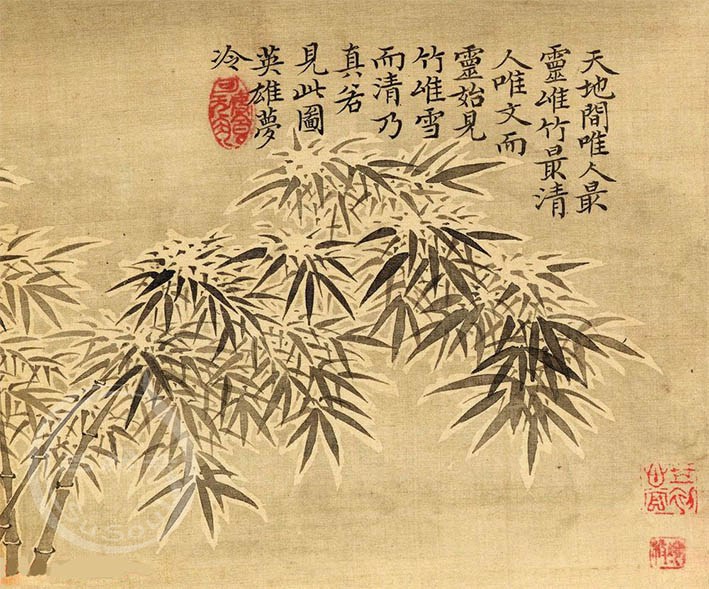 天地間唯人最
靈唯竹最清
人唯文而
靈始見
竹唯雪
而清乃
真若
見此圖
英雄夢
冷